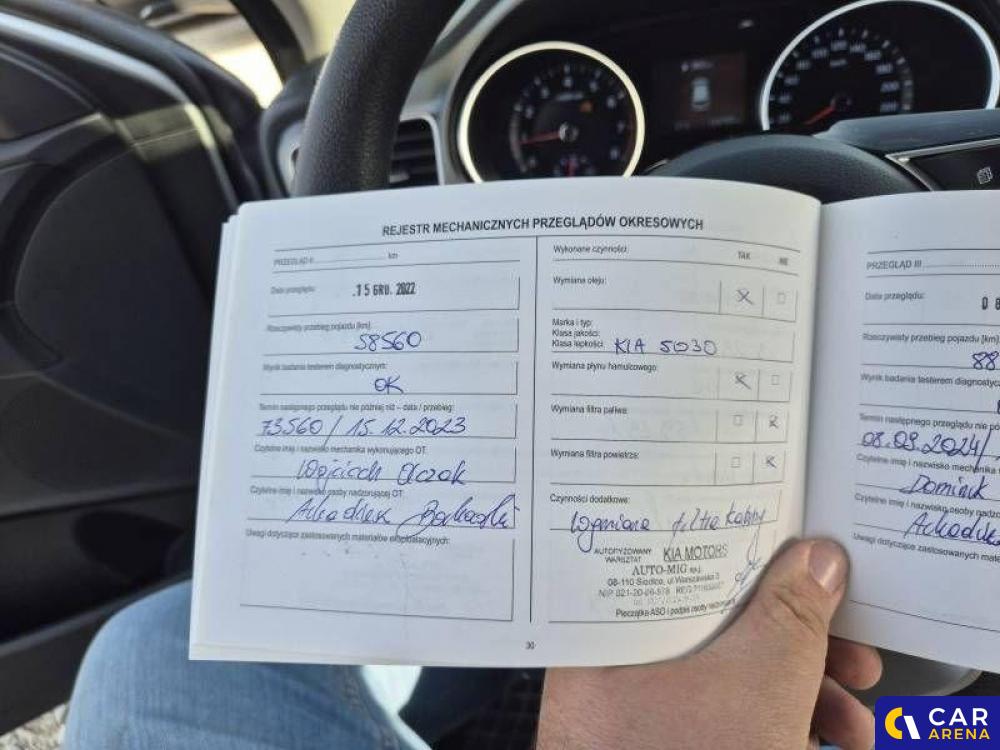 REJESTR MECHANICZNYCH PRZEGLĄDÓW OKRESOWYCH
PRZEGLĄD II km
Data przeglądu: 15 GRU. 2022
Rzeczywisty przebieg pojazdu [km]:
58560
Wynik badania testerem diagnostycznym:
OK
Termin następnego przeglądu nie później niż – data / przebieg:
73560 / 15.12.2023
Czytelne imię i nazwisko mechanika wykonującego OT:
Wojciech
Czytelne imię i nazwisko osoby nadzorującej OT:
Uwagi dotyczące zastosowanych materiałów eksploatacyjnych:
Wykonane czynności: TAK NIE
Wymiana oleju:
Marka i typ:
Klasa jakości:
Klasa lepkości: KIA 5W30
Wymiana płynu hamulcowego:
Wymiana filtra paliwa:
Wymiana filtra powietrza:
Czynności dodatkowe:
Wymiana filtra kabiny
AUTORYZOWANY
WARSZTAT KIA MOTORS
AUTO-MIG sp.j.
08-110 Siedlce, ul. Warszawska
NIP 821-20-06-578 REG
Pieczątka ASO i podpis osoby nadzorującej
30
PRZEGLĄD III
Data przeglądu: 0
Rzeczywisty przebieg pojazdu [km]
88
Wynik badania testerem
Termin następnego przeglądu nie
08.09.2024/
Czytelne imię i nazwisko
Dominik
Czytelne imię i nazwisko osoby
Uwagi dotyczące zastosowanych
CAR
ARENA